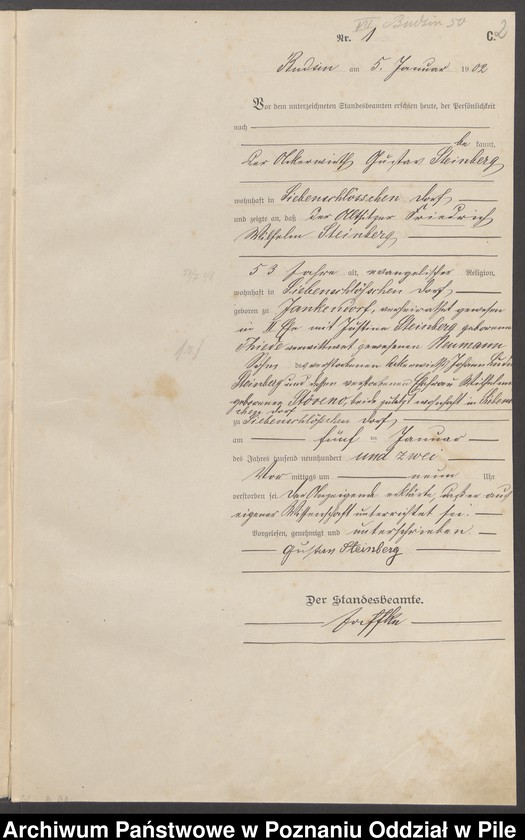 VII Budsin 50
Nr. 1 C. 2
Budsin am 5. Januar 1902
Vor dem unterzeichneten Standesbeamten erschien heute, der Persönlichkeit
nach
be kannt,
der Ackerwirth Gustav Steinberg
wohnhaft in Liebenschlösschen Dorf
und zeigte an, daß der Altsitzer Friedrich
Wilhelm Steinberg
53 Jahre alt, evangelischer Religion,
wohnhaft in Liebenschlößchen Dorf
geboren zu Jankendorf, verheirathet gewesen
in II Ehe mit Justine Steinberg geborenen
Thiede verwittwet gewesenen Neumann
Sohn des verstorbenen Ackerwirths Johann
Steinberg und dessen verstorbenen Ehefrau Wilhelmine
geborenen beide zuletzt wohnhaft in Liebenschlößchen Dorf
zu Liebenschlößchen Dorf
am fünf ten Januar
des Jahres tausend neunhundert und zwei
Vor mittags um neun Uhr
verstorben sei. Der Anzeigende erklärte, daß er aus
eigener Wissenschaft unterrichtet sei.
Vorgelesen, genehmigt und unterschrieben.
Gustav Steinberg
Der Standesbeamte.
Archiwum Państwowe w Poznaniu Oddział w Pile